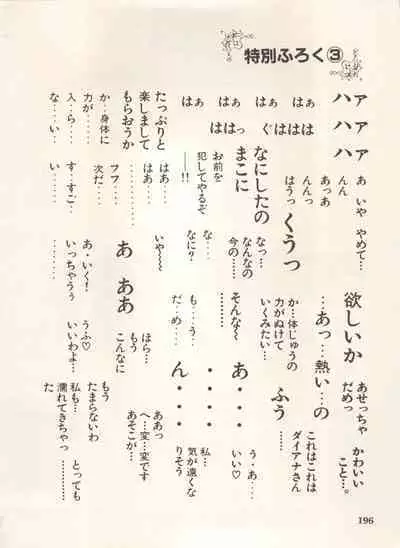 特別ふろく③
ァ ァ ァ
ハ ハ ハ
はぁ はぁ はぁ はぁ
ぐははは
ははっ
あ いや やめて…
んん
あっあ
んんっ
はうっ
なにしたの
まこに
お前を
犯してやるぞ
──!!
たっぷりと
楽しまして
もらおうか
はぁ…
はあ…
フフ…
次だ…
か…身体に
力が…
入…ら…
な…い…
す…すご…
い……
くうっ
なっ…
なんなの
今の……
な…
なに?
いや～～
欲しいか
あせっちゃ
だめっ
かわいい
こと…。
…あっ…熱い…の
か…体じゅうの
力がぬけて
いくみたい…
そんな～
も…う…
だ…め…
あ ああ
あ・いく!
いっちゃうぅ
うふ♡
いいわよ…
ほら…
もう
こんなに
これはこれは
ダイアナさん
ふう
あ・・・・
ん・・・・
う・あ…
いい♡
私…
気が遠くな
りそう
ああっ
へ…変…変です
あそこが…
もう
たまらないわ
私も…
濡れてきちゃっ
た
とっても
………
196